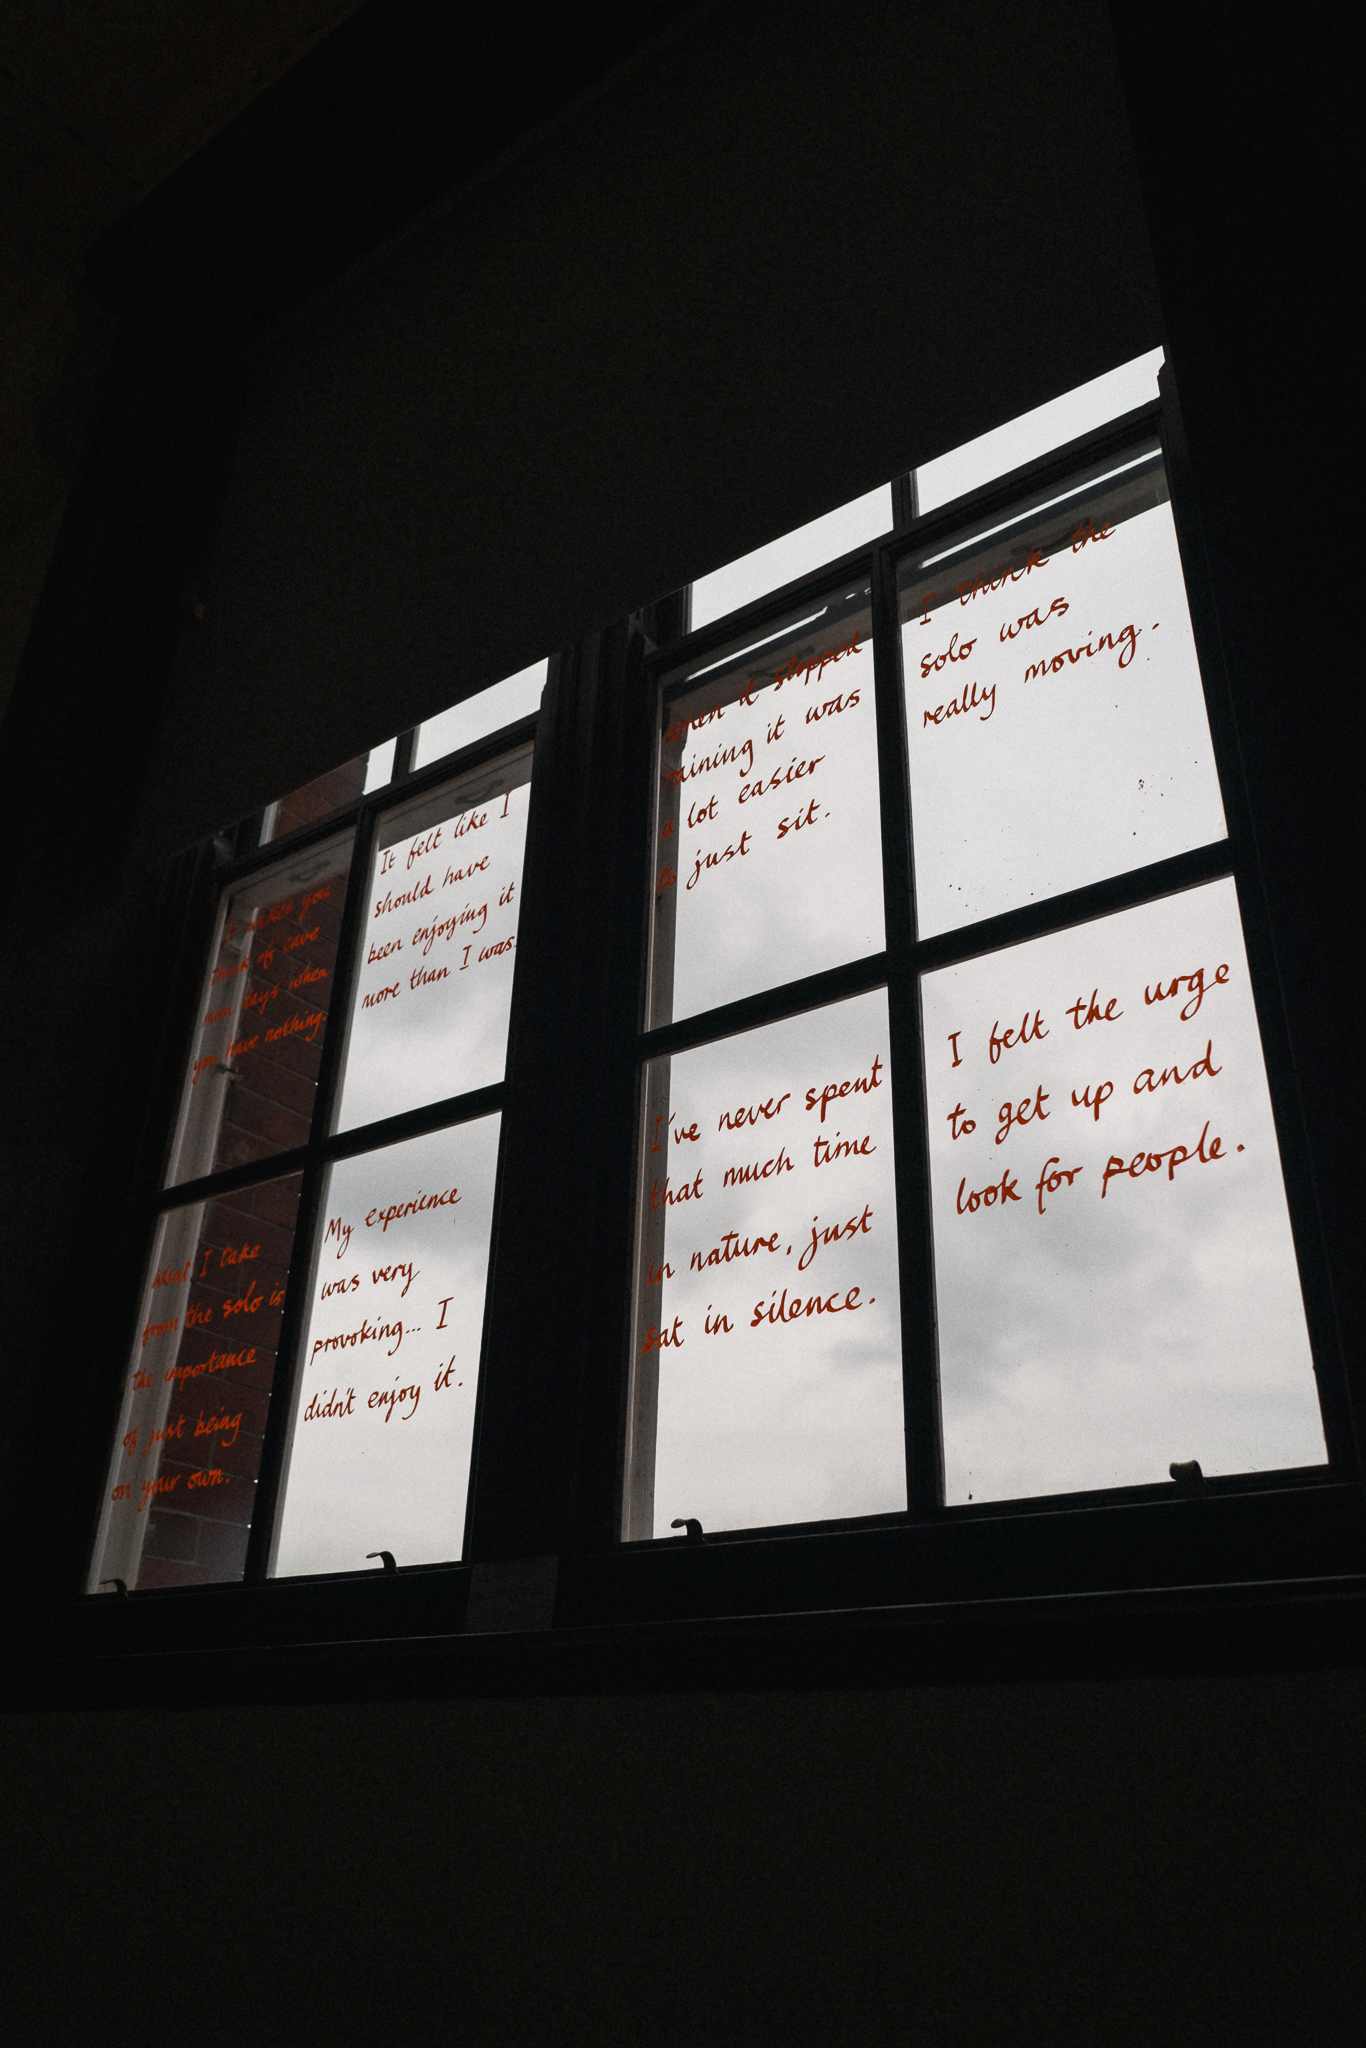 It makes you
think of cave
man days when
you have nothing.
It felt like I
should have
been enjoying it
more than I was.
What I take
from the solo is
the importance
of just being
on your own.
My experience
was very
provoking... I
didn't enjoy it.
When it stopped
raining it was
a lot easier
to just sit.
I think the
solo was
really moving.
I've never spent
that much time
in nature, just
sat in silence.
I felt the urge
to get up and
look for people.